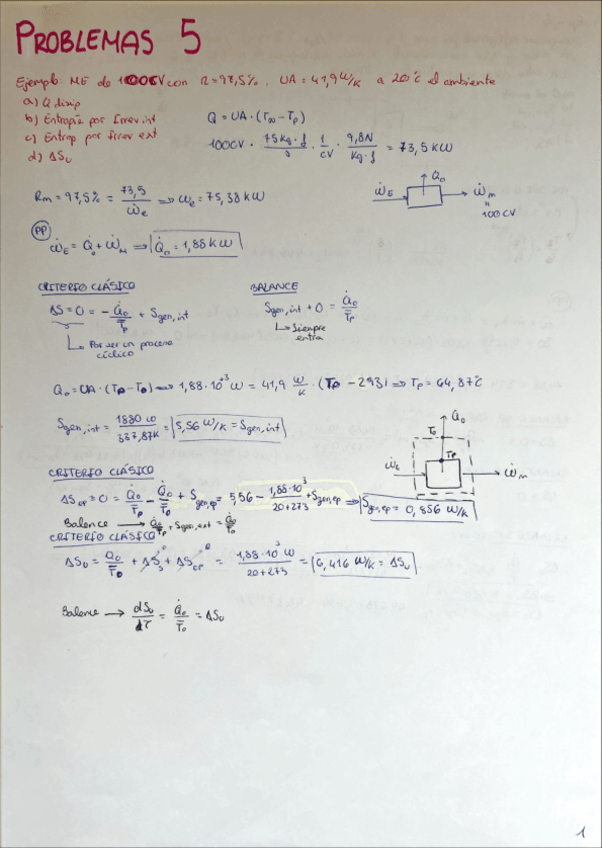 PROBLEMAS 5
Ejemplo: ME de 100CV con R=97,5%. UA=41,9 W/K a 20°C el ambiente
a) Q disip
b) Entropía por Irrev. int
c) Entrop por irrev ext
d) ΔSu
Q = UA·(T∞ - Tp)
100CV · 75 kg·f/s · 1/CV · 9,8N/kg·f = 73,5 kW
Rm = 97,5% = 73,5/Ẇe ⇒ Ẇe = 75,38 kW
Q̇o
ẆE
Ẇm
"
100CV
PP
ẆE = Q̇o + ẆM ⇒ Q̇o = 1,88 kW
CRITERIO CLÁSICO
ΔS = 0 = - Q̇o/Tp + Sgen,int
↳ Por ser un proceso
cíclico
BALANCE
Sgen,int + 0 = Q̇o/Tp
↳ Siempre
entra
Qo = UA·(Tp - To) ⇒ 1,88·10⁺³ W = 41,9 W/K · (Tp - 293) ⇒ Tp = 64,87°C
Sgen,int = 1880 W/337,87K = 5,56 W/K = Sgen,int
Q̇o
To
Tp
ẆE
Ẇm
CRITERIO CLÁSICO
ΔSep = 0 = Q̇o/Tp - Q̇o/To + Sgen,ep = 5,56 - 1,88·10³/20+273 + Sgen,ep ⇒ Sgen,ep = 0,856 W/K
Balance → Q̇o/Tp + Sgen,ext = Q̇o/To
CRITERIO CLÁSICO
ΔSu = Q̇o/To + ΔSs + ΔSep = 1,88·10³ W/20+273 = 6,416 W/K = ΔSu
Balance → dSu/dτ = Q̇o/To = ΔSu
1